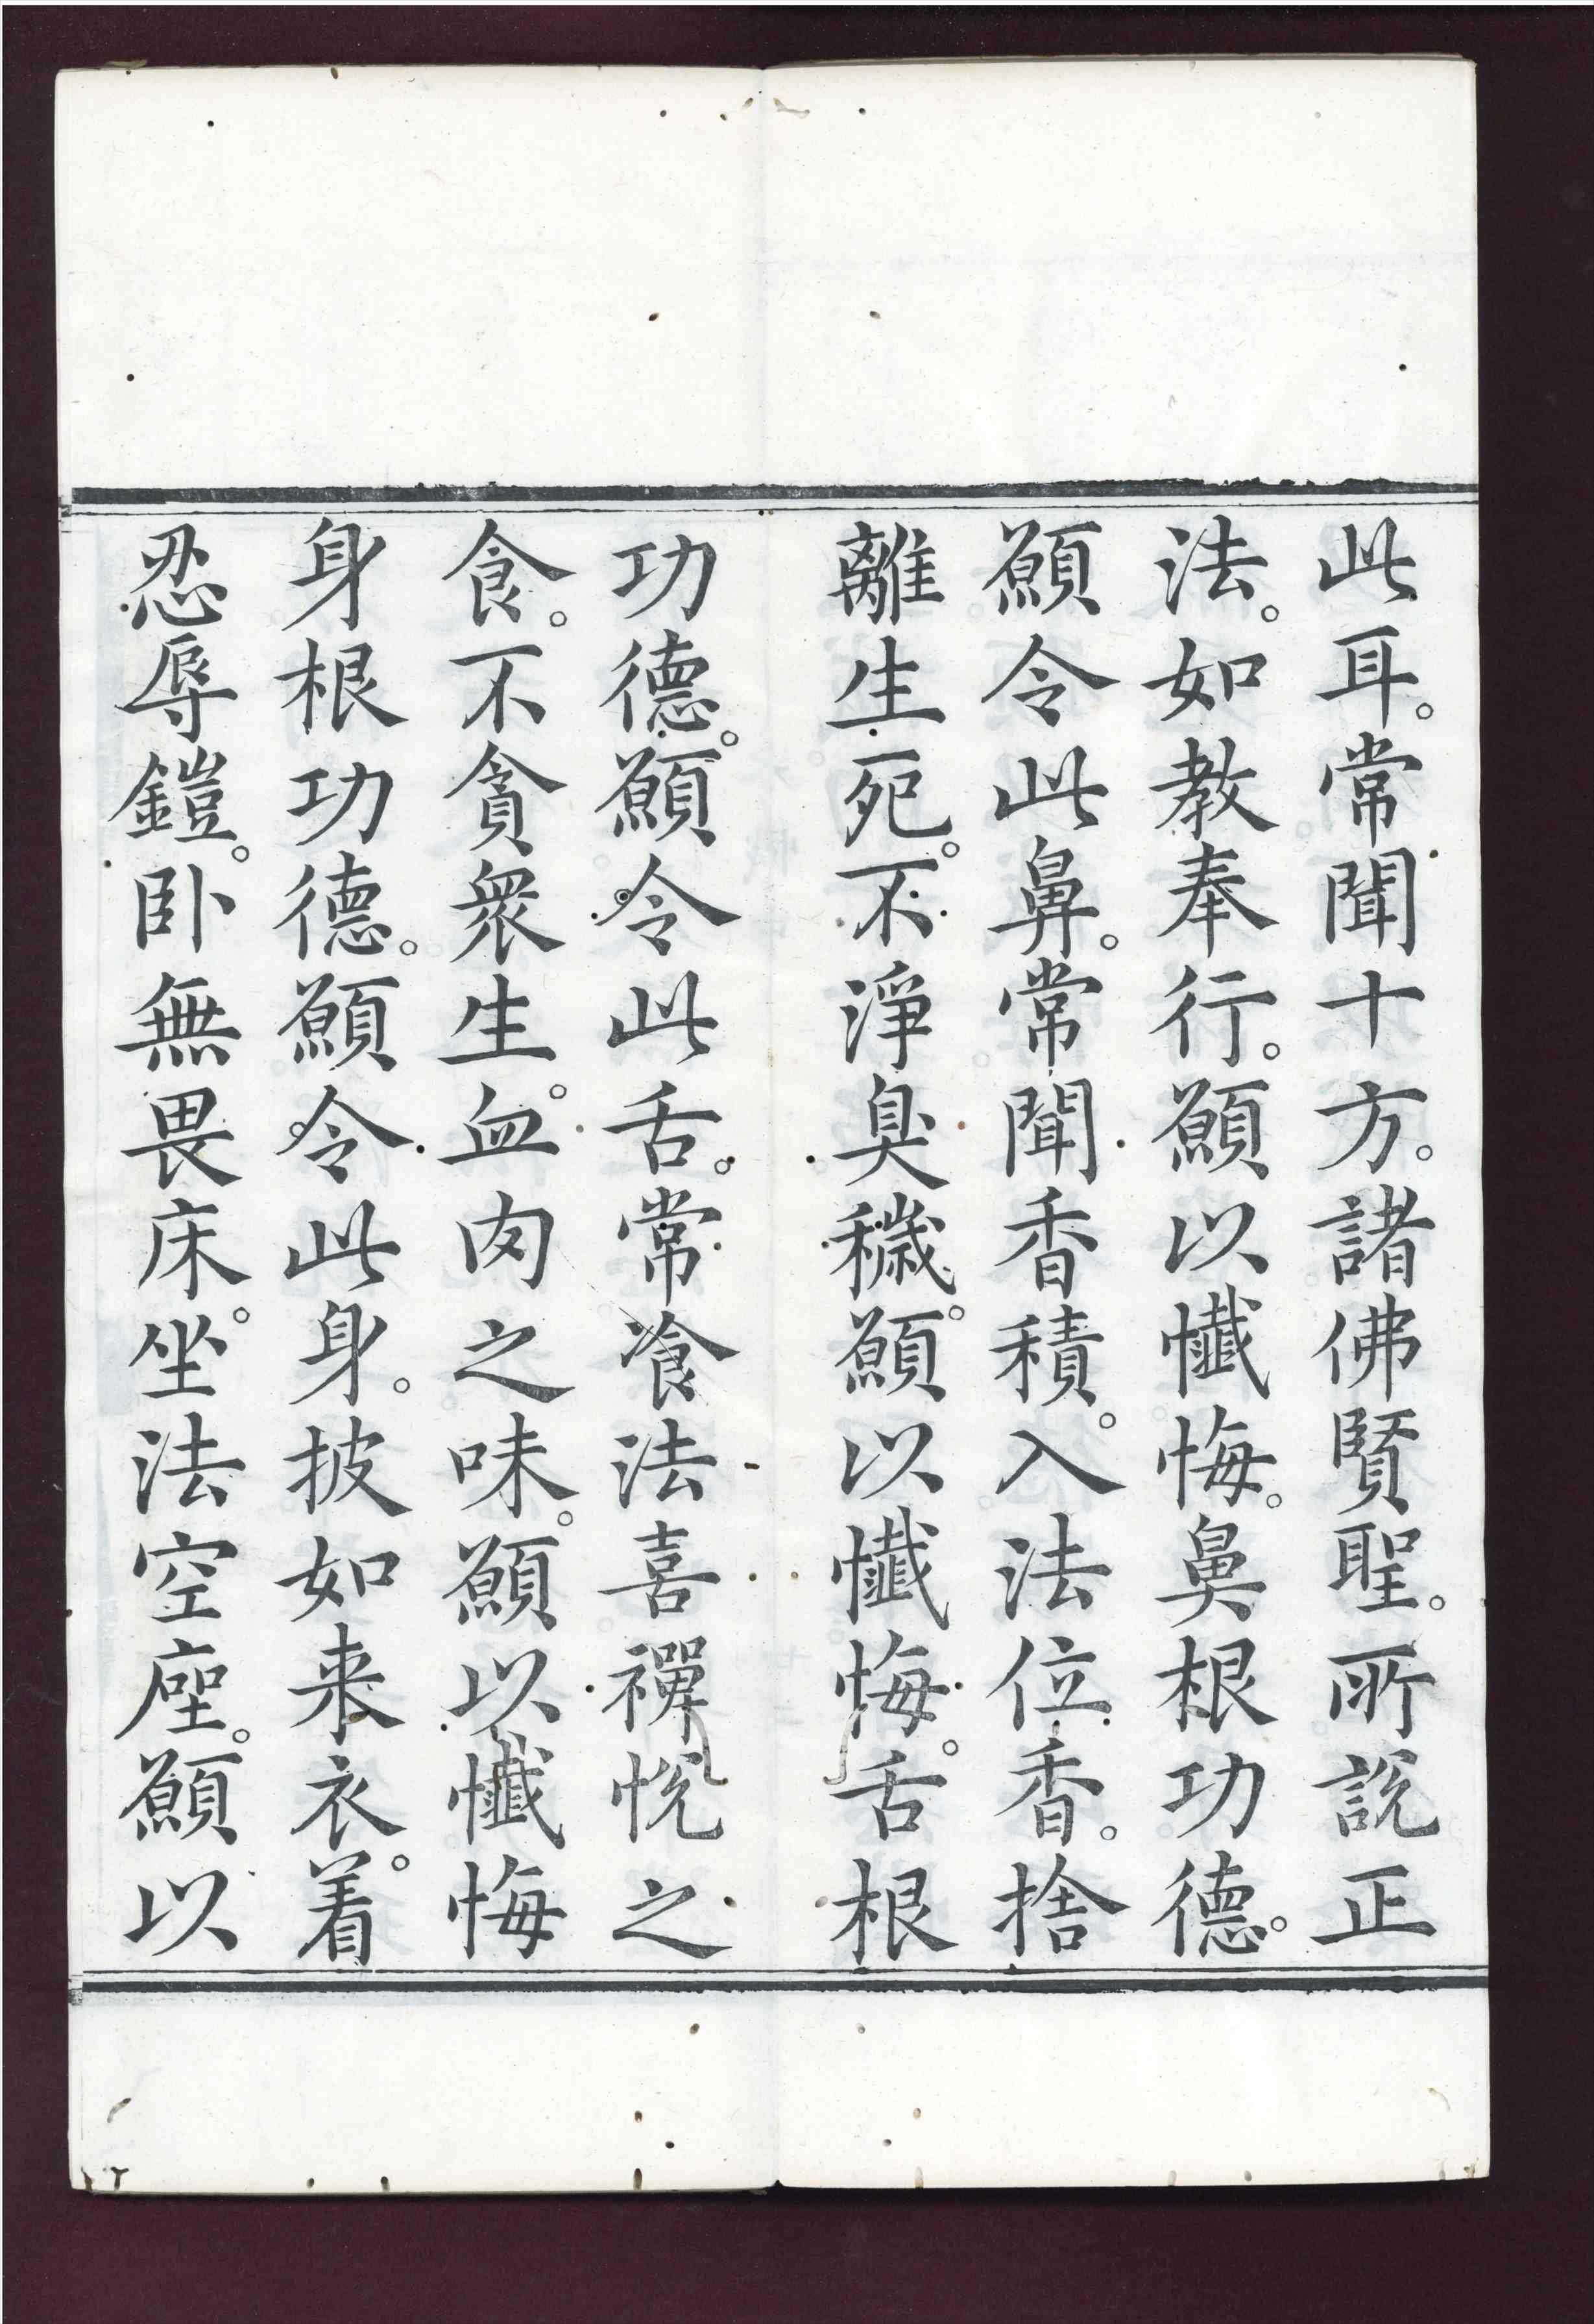 此耳。常聞十方。諸佛賢聖。所說正
法。如教奉行。願以懺悔。鼻根功德。
願令此鼻。常聞香積。入法位香。捨
離生死。不淨臭穢。願以懺悔。舌根
功德。願令此舌。常飡法喜禪悅之
食。不貪衆生。血肉之味。願以懺悔
身根功德。願令此身。披如来衣。着
忍辱鎧。卧無畏床。坐法空座。願以